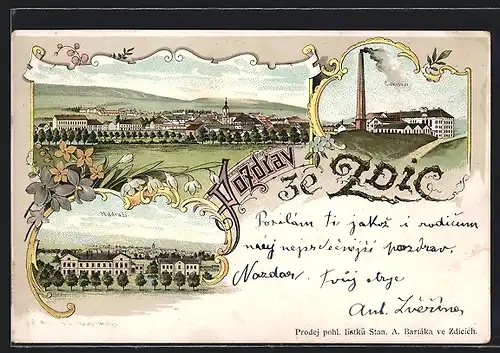 Cukrovar
Pozdrav
ze Zdic
Nádraží
Posílám ti jakož i rodičům
nejsrdečnější pozdrav.
Nazdar. Tvůj
Ant. Zvěřina
Prodej pohl. lístků Stan. A. Bartáka ve Zdicích.